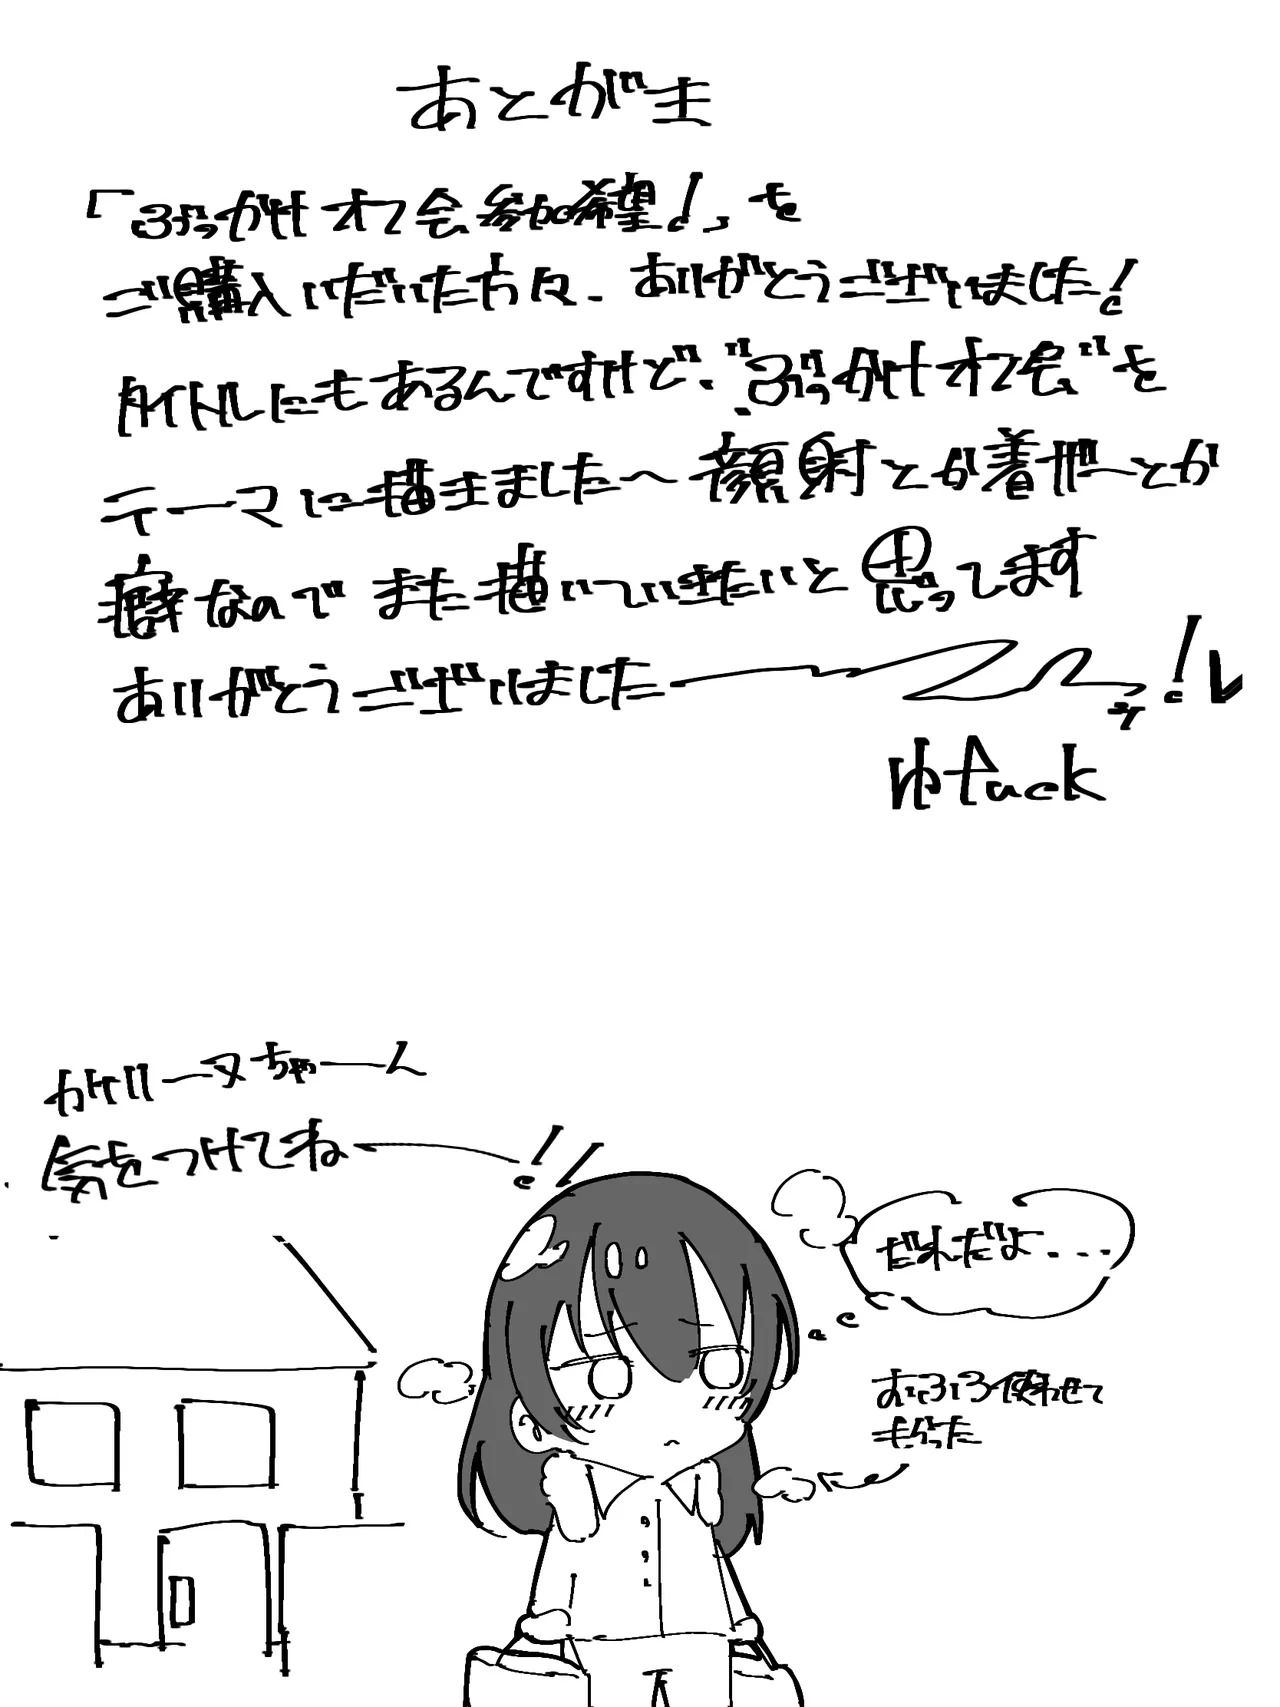 あとがき
「ぶっかけオフ会参加希望!」を
ご購入いただいた方々、ありがとうございました!
タイトルにもあるんですけど、"ぶっかけオフ会"を
テーマに描きました〜顔射とか着ザーとか
癖なのでまた描いていきたいと思ってます
ありがとうございましたー!!
ゆfuck
ガリーヌちゃーん
気をつけてねー!!
だれだよ...
おふろ使わせて
もらった